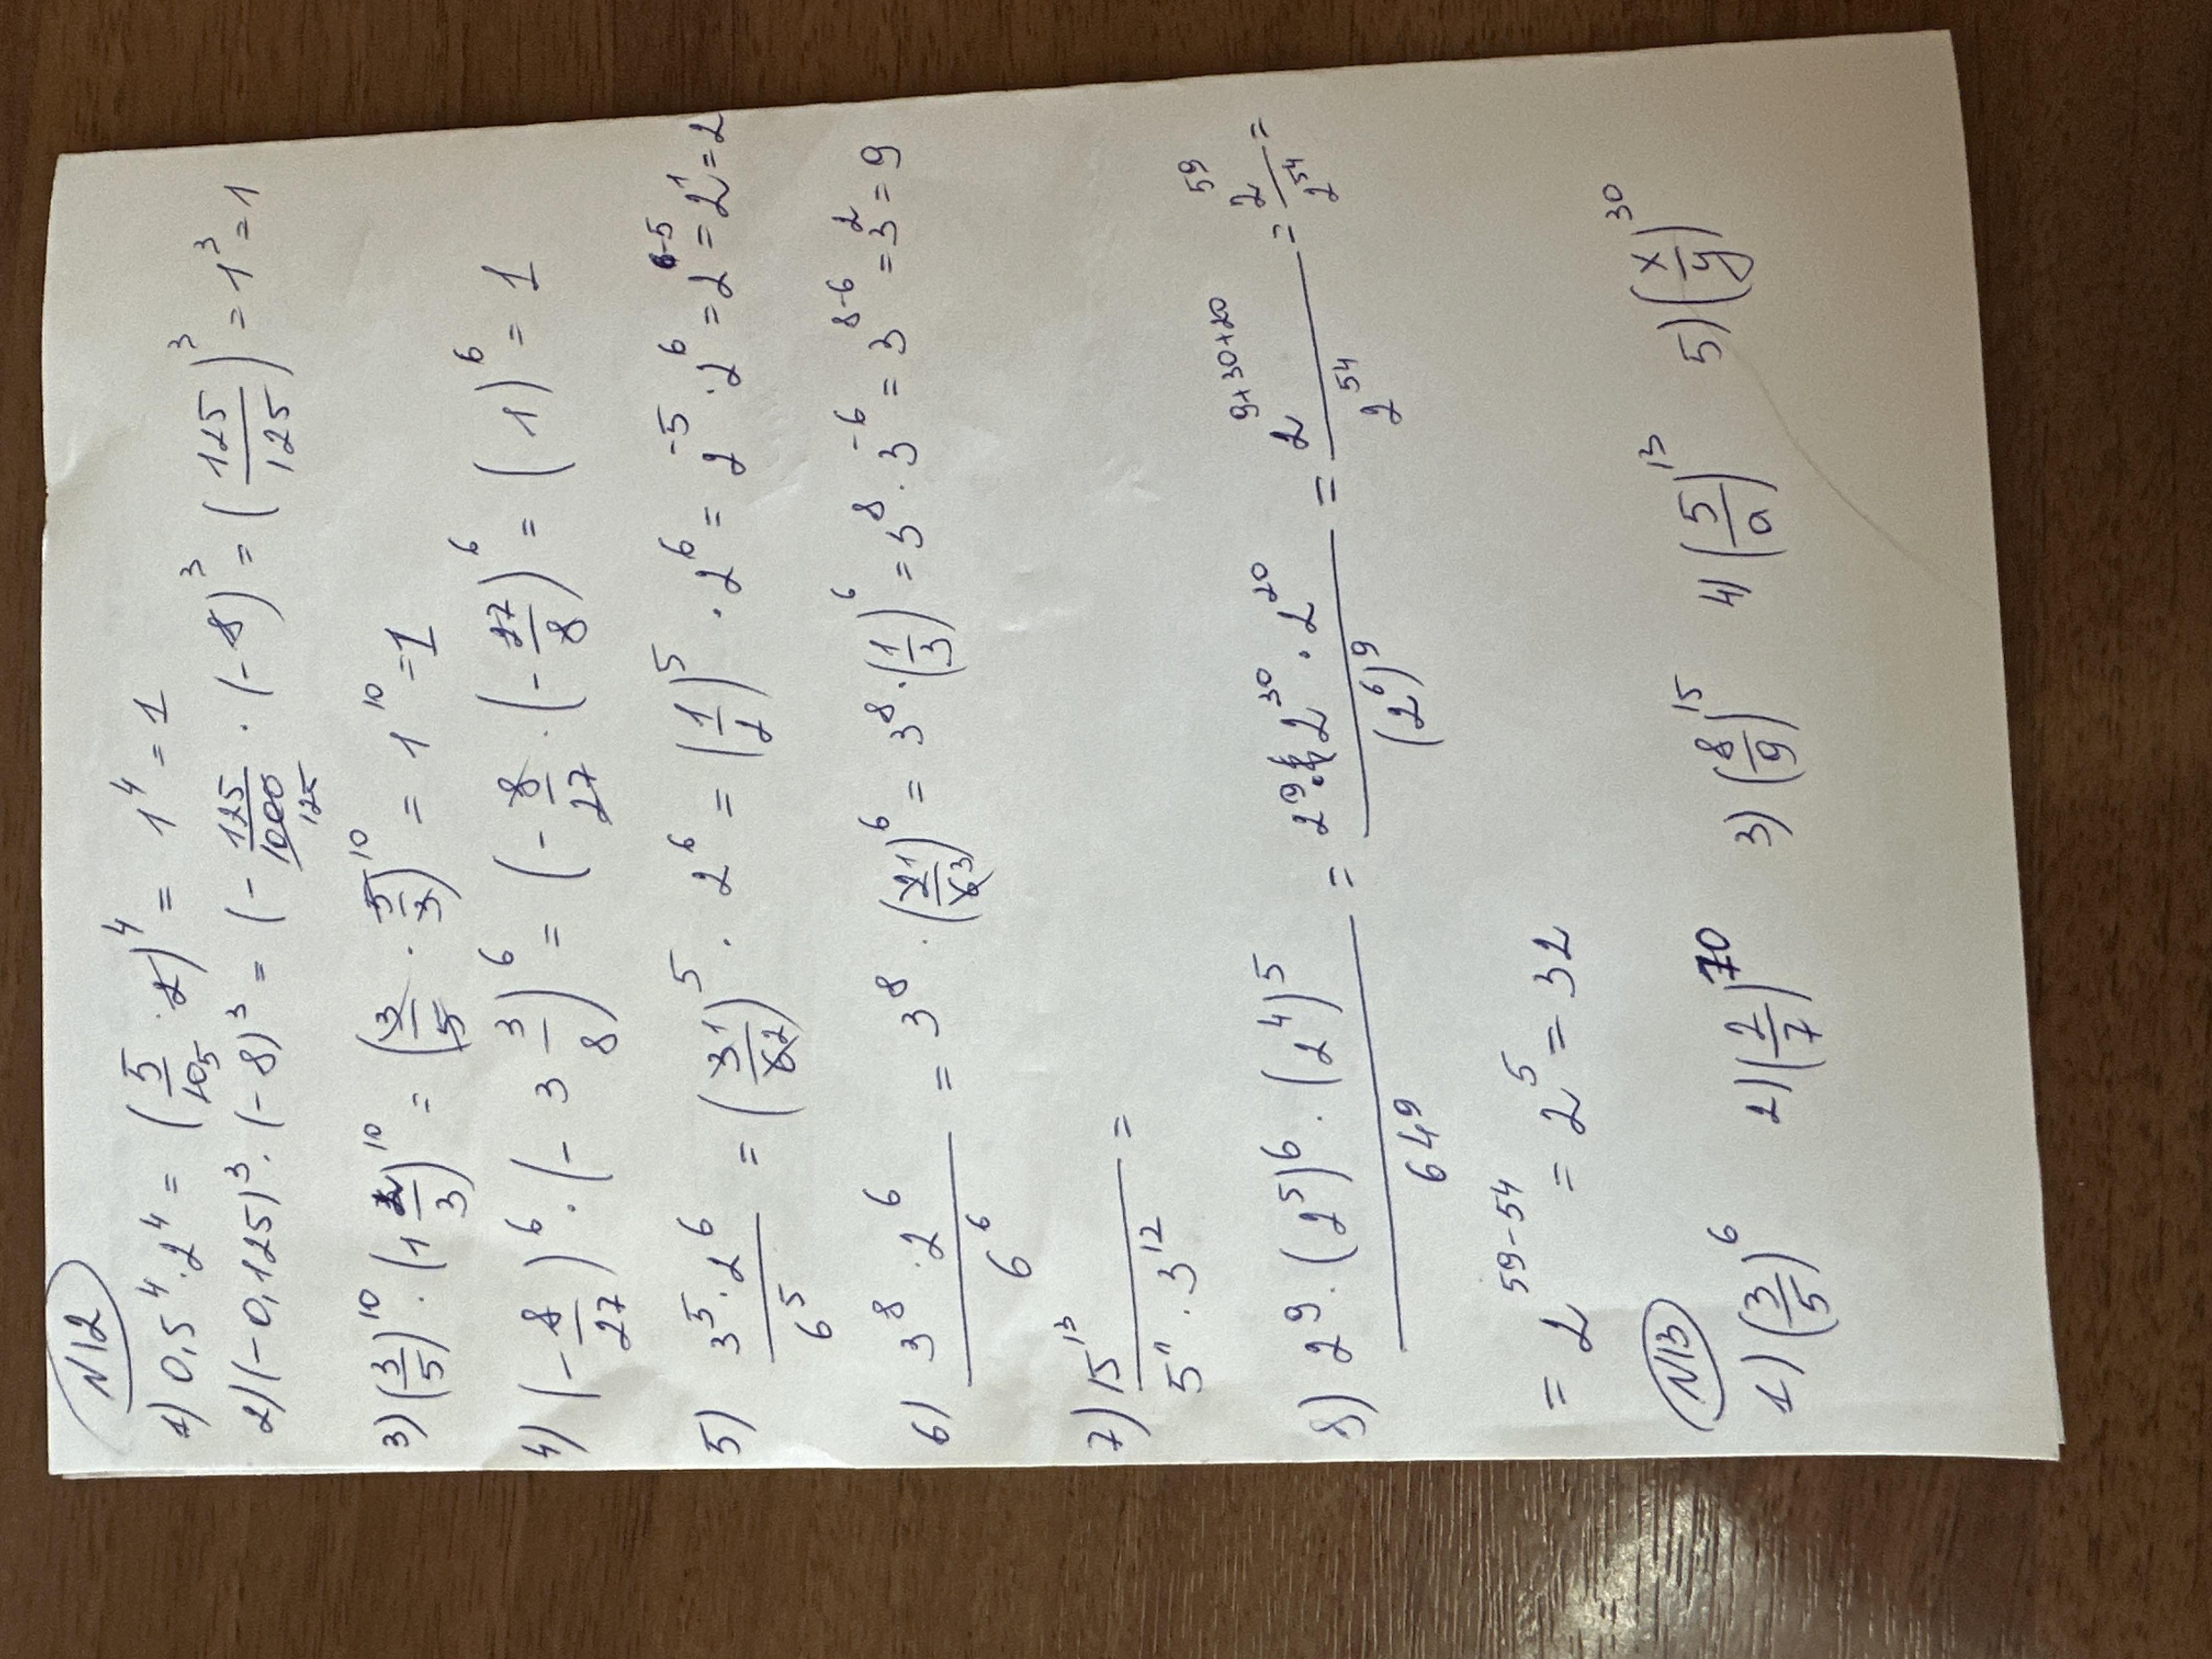 N12
1) 0,5^4 · 2^4 = (5/10_5 · 2)^4 = 1^4 = 1
2) (-0,125)^3 · (-8)^3 = (-125/1000_125 · (-8))^3 = (125/125)^3 = 1^3 = 1
3) (3/5)^10 · (1 2/3)^10 = (3/5 · 5/3)^10 = 1^10 = 1
4) (-8/27)^6 · (-3 3/8)^6 = (-8/27 · (-27/8))^6 = (1)^6 = 1
5) 3^5 · 2^6 / 6^5 = (3^1/6_2)^5 · 2^6 = (1/2)^5 · 2^6 = 2^-5 · 2^6 = 2^6-5 = 2^1 = 2
6) 3^8 · 2^6 / 6^6 = 3^8 · (2^1/6_3)^6 = 3^8 · (1/3)^6 = 3^8 · 3^-6 = 3^8-6 = 3^2 = 9
7) 15^13 / 5^11 · 3^12 =
8) 2^9 · (2^5)^6 · (2^4)^5 / 64^9 = 2^9 · 2^30 · 2^20 / (2^6)^9 = 2^9+30+20 / 2^54 = 2^59 / 2^54 =
= 2^59-54 = 2^5 = 32
N13
1) (3/5)^6 2) (2/7)^10 3) (8/9)^15 4) (5/a)^13 5) (x/y)^30